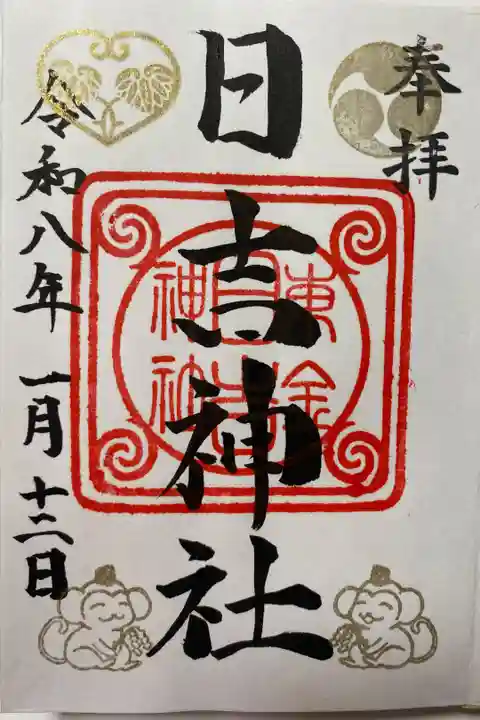 奉拝
日吉神社
東金
日吉
神社
令和八年一月十二日